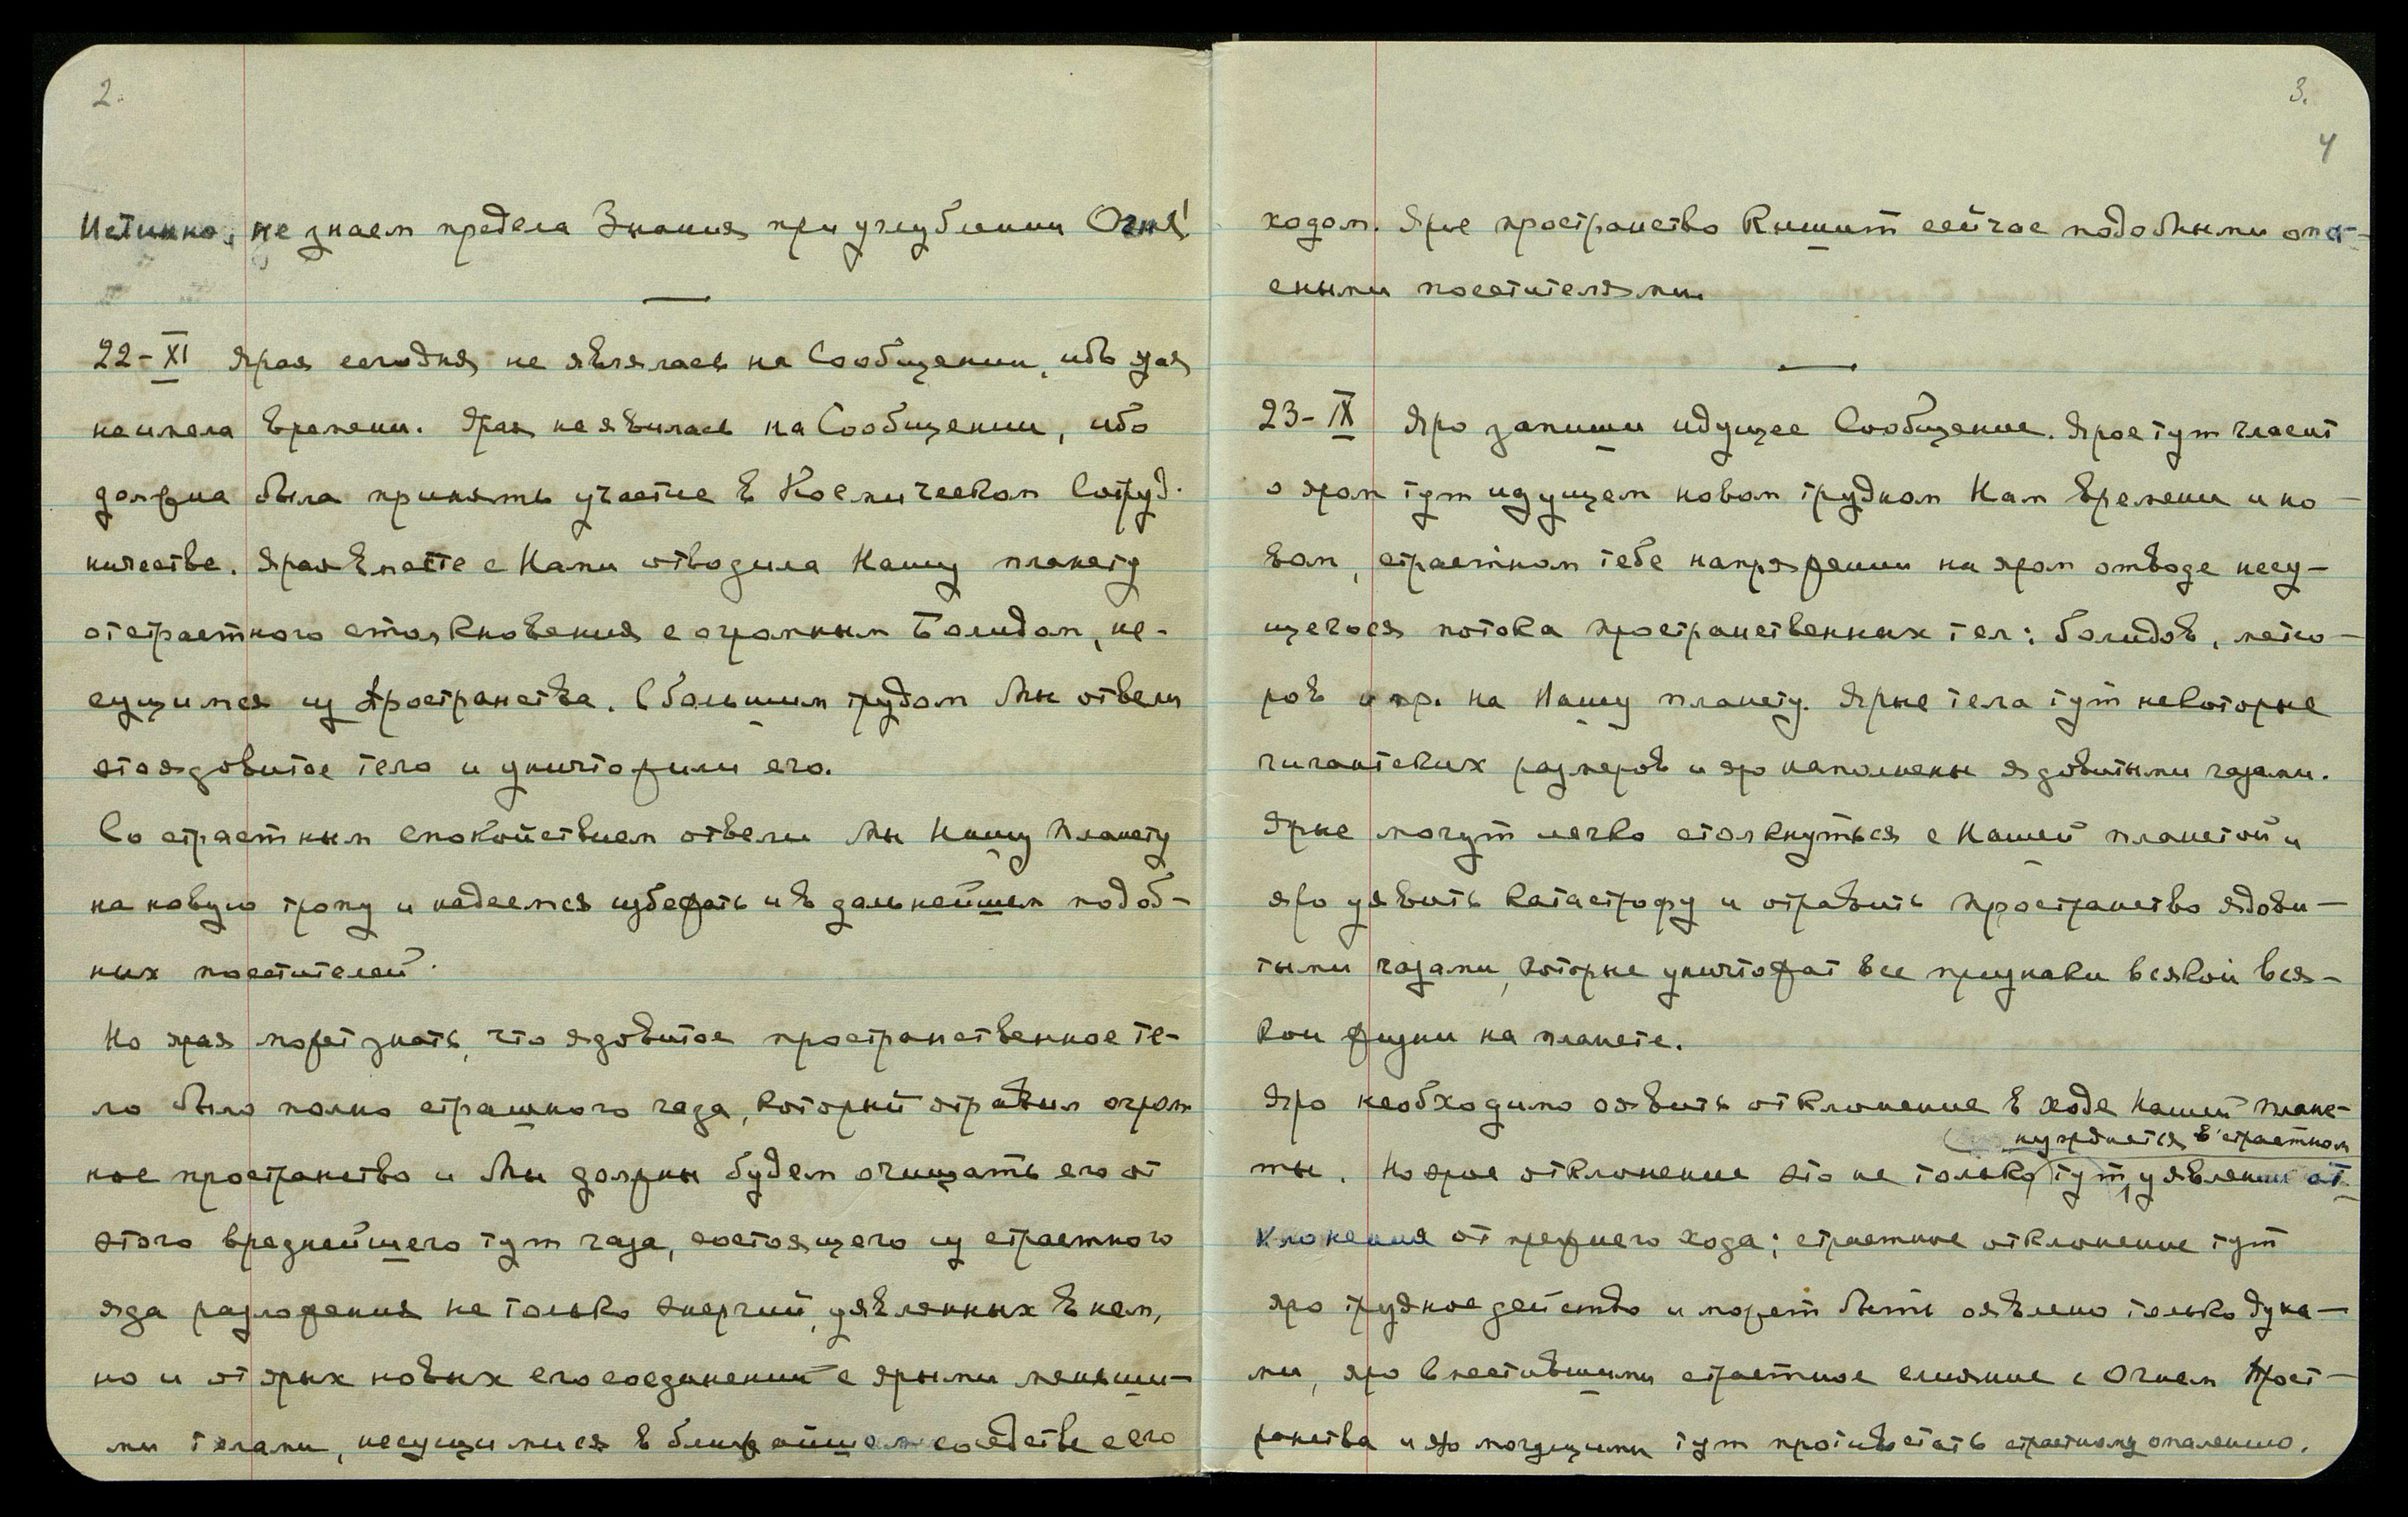 2.
Истинно, не знаем предела Знания при углублении Огня!
22-XI Ярая сегодня не являлась на Сообщении, ибо ярая
не имела времени. Ярая не явилась на Сообщении, ибо
должна была принять участие в Космическом Сотруд-
ничестве. Ярая вместе с Нами отводила Нашу планету
от страстного столкновения с огромным Болидом, не-
сущимся из пространства. С большим трудом Мы отвели
это ядовитое тело и уничтожили его.
Со страстным спокойствием отвели Мы Нашу Планету
на новую тропу и надеемся избежать и в дальнейшем подоб-
ных посетителей.
Но ярая может знать, что ядовитое пространственное те-
ло было полно страшного газа, который отравил огром
ное пространство и Мы должны будем очищать его от
этого вреднейшего тут газа, состоящего из страстного
яда разложения не только энергий, уявленных в нем,
но и от ярых новых его соединений с ярыми меньши-
ми телами, несущимися в ближайшем соседстве с его
3.
4
ходом. Ярое пространство кишит сейчас подобными опа-
сными посетителями.
23-IX Яро запиши идущее Сообщение. Ярое тут гласит
о яром тут идущем новом трудном Нам времени и но-
вом, страстном тебе напряжении на яром отводе несу-
щегося потока пространственных тел: болидов, метео-
ров и пр. на Нашу планету. Ярые тела тут некоторые
гигантских размеров и яро наполнены ядовитыми газами.
Ярые могут легко столкнуться с Нашей планетой и
яро уявить катастрофу и отравить пространство ядови-
тыми газами, которые уничтожат все признаки всякой вся-
кой жизни на планете.
Яро необходимо оявить отклонение в ходе Нашей плане-
нуждается в страстном
ты. Но ярое отклонение это не только тут, уявлении от-
клонения от прежнего хода; страстное отклонение тут
яро трудное действо и может быть оявлено только Духа-
ми, яро вместившими страстное слияние с Огнем Прост-
ранства и яро могущими тут противостать страстному опалению.